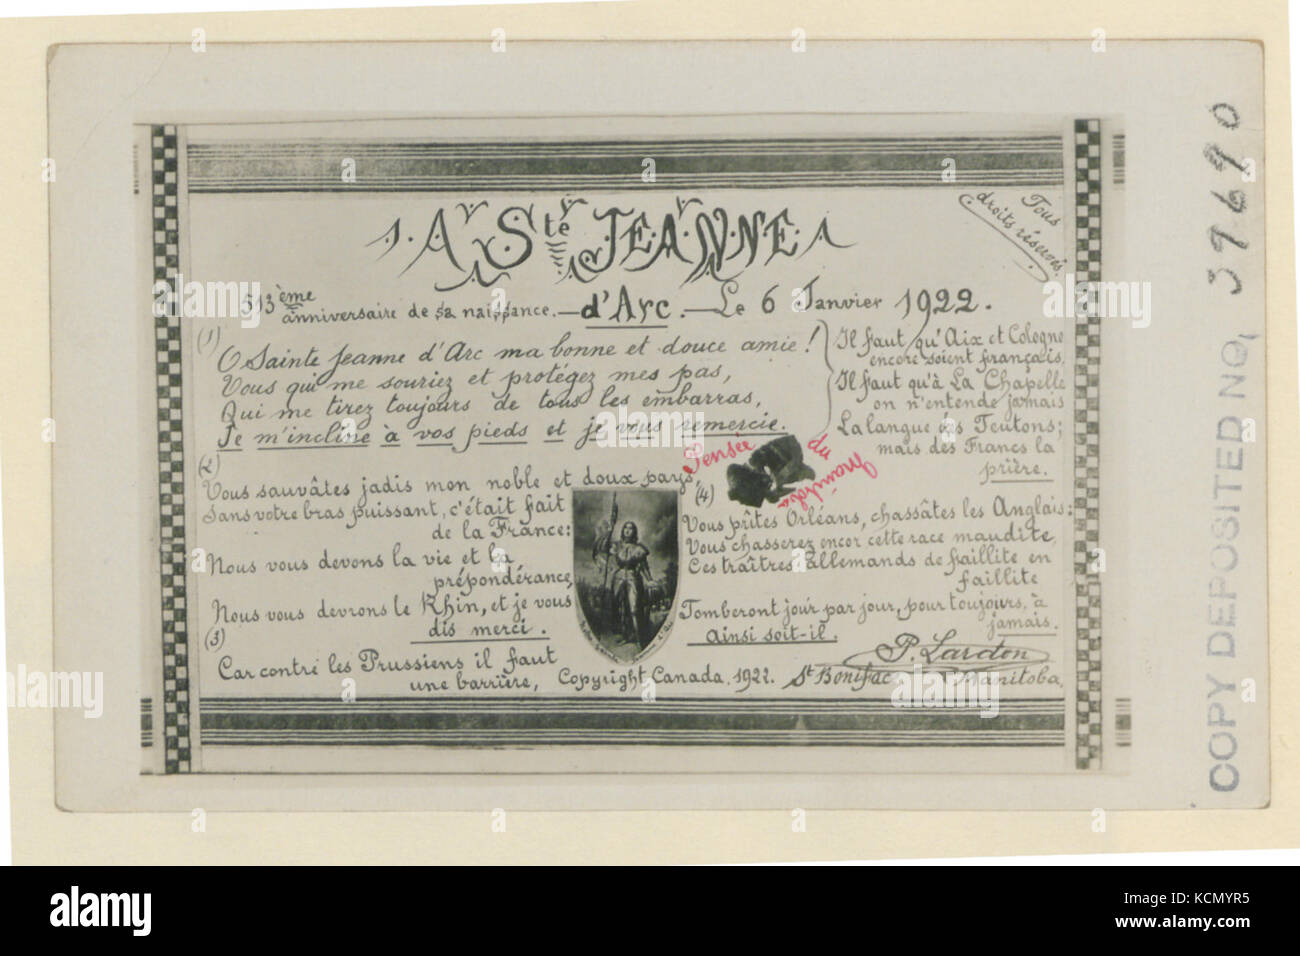 Tous
droits réservés.
A Ste JEANNE
513ème
anniversaire de sa naissance. — d'Arc. — Le 6 Janvier 1922.
(1)
O Sainte Jeanne d'Arc ma bonne et douce amie!
Vous qui me souriez et protégez mes pas,
Qui me tirez toujours de tous les embarras,
Je m'incline à vos pieds et je vous remercie.
(2)
Vous sauvâtes jadis mon noble et doux pays,
Sans votre bras puissant, c'était fait
de la France:
Nous vous devons la vie et la
prépondérance,
Nous vous devrons le Rhin, et je vous
dis merci.
(3)
Car contre les Prussiens il faut
une barrière,
Il faut qu'Aix et Cologne
encore soient français,
Il faut qu'à La Chapelle
on n'entende jamais
La langue des Teutons;
mais des Francs la
prière.
Pensée du Manitoba
(4)
Vous prîtes Orléans, chassâtes les Anglais:
Vous chasserez encor cette race maudite,
Ces traîtres allemands de faillite en
faillite
Tomberont jour par jour, pour toujours, à
jamais.
Ainsi soit-il.
P. Lardon
Copyright Canada, 1922. St Boniface Manitoba.
COPY DEPOSITED NO. 39690
alamy
Image ID: KCMYR5
www.alamy.com